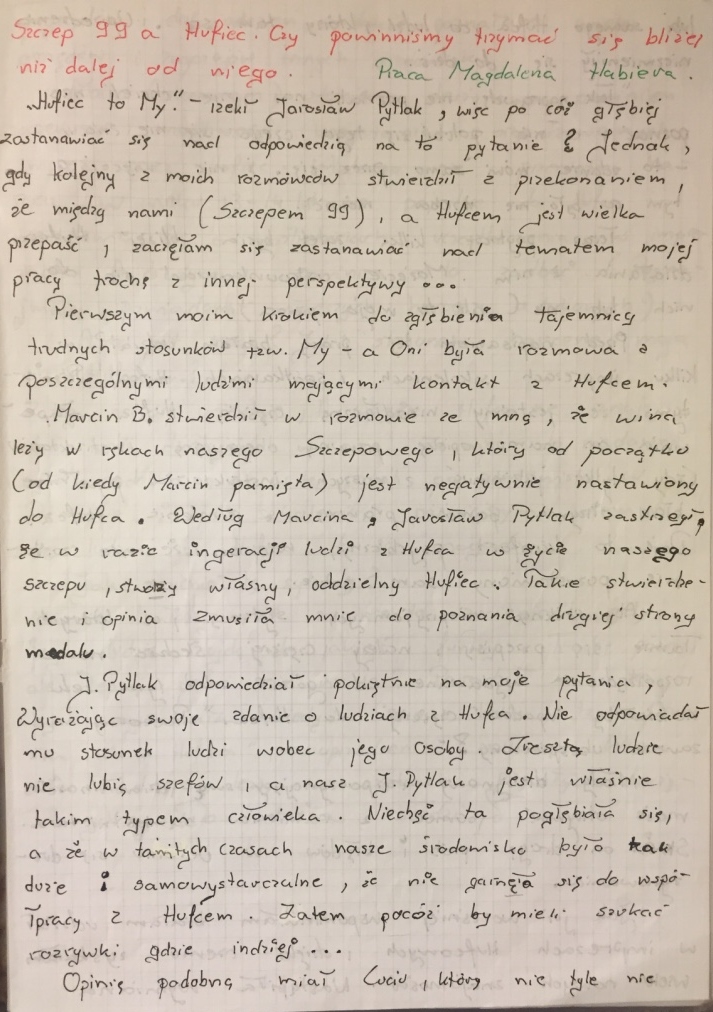 Szczep 99 a Hufiec. Czy powinniśmy trzymać się bliżej
niż dalej od niego. Praca Magdalena Habiera.
„Hufiec to My." - rzekł Jarosław Pytlak, więc po cóż głębiej
zastanawiać się nad odpowiedzią na to pytanie? Jednak,
gdy kolejny z moich rozmówców stwierdził z przekonaniem,
że między nami (Szczepem 99), a Hufcem jest wielka
przepaść, zaczęłam się zastanawiać nad tematem mojej
pracy trochę z innej perspektywy...
Pierwszym moim krokiem do zgłębienia tajemnicy
trudnych stosunków tzw. My - a Oni była rozmowa z
poszczególnymi ludźmi mającymi kontakt z Hufcem.
Marcin B. stwierdził w rozmowie ze mną, że wina
leży w rękach naszego Szczepowego, który od początku
(od kiedy Marcin pamięta) jest negatywnie nastawiony
do Hufca. Według Marcina, Jarosław Pytlak zastrzegł,
że w razie ingeracji ludzi z Hufca w życie naszego
szczepu, stworzy własny, oddzielny Hufiec. Takie stwierdze-
nie i opinia zmusiła mnie do poznania drugiej strony
medalu.
J. Pytlak odpowiedział pokrętnie na moje pytania,
Wyrażając swoje zdanie o ludziach z Hufca. Nie odpowiadał
mu stosunek ludzi wobec jego osoby. Zresztą ludzie
nie lubią szefów, a nasz J. Pytlak jest właśnie
takim typem człowieka. Niechęć ta pogłębiała się,
a że w tamtych czasach nasze środowisko było tak
duże i samowystarczalne, że nie garnęła się do wspó-
łpracy z Hufcem. Zatem pocóż by mieli szukać
rozrywki gdzie indziej...
Opinię podobną miał Luciu, który nie tyle nie